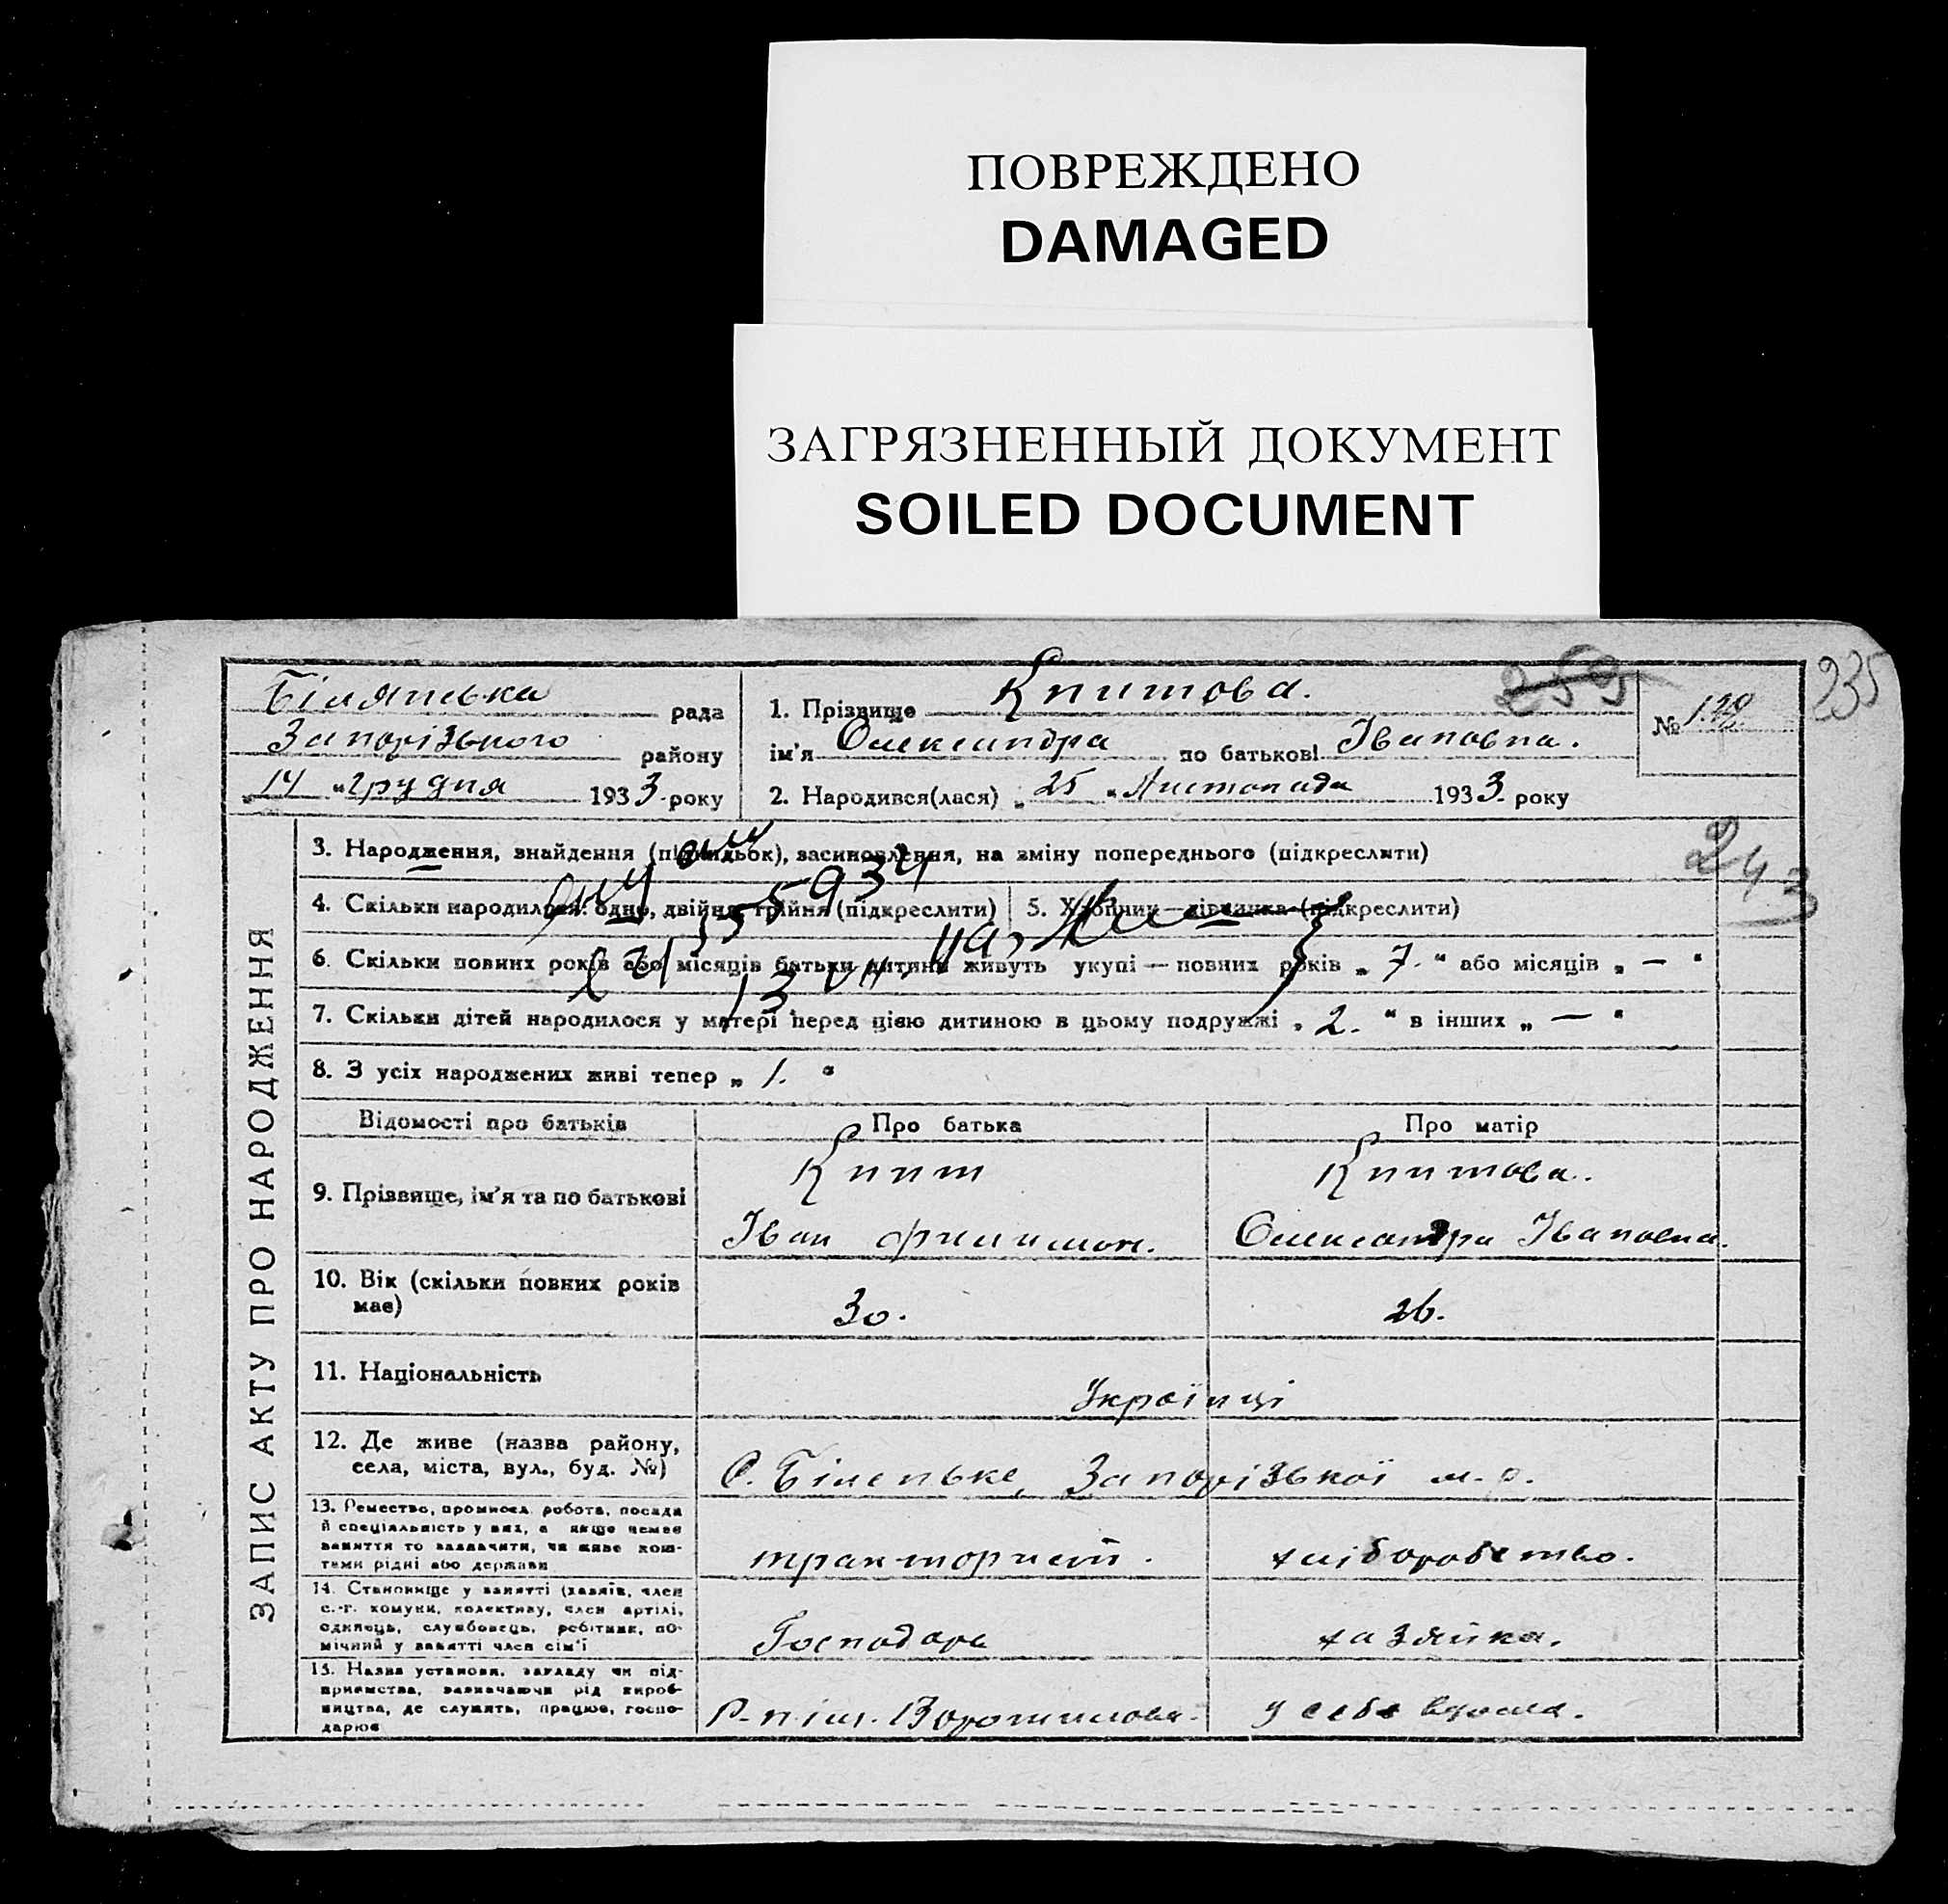 ПОВРЕЖДЕНО
DAMAGED
ЗАГРЯЗНЕННЫЙ ДОКУМЕНТ
SOILED DOCUMENT
259
235
рада
Запорізького району
"14" грудня 1933 року
1. Прізвище Кпитова.
ім'я Олександра по батькові Івановна.
2. Народився(лася) "25" Листопада 1933 року
№
243
ЗАПИС АКТУ ПРО НАРОДЖЕННЯ
3. Народження, знайдення (підкидьок), засиновлення, на зміну попереднього (підкреслити)
4. Скільки народилося: одно, двійня, трійня (підкреслити)
5. Хлопчик—дівчинка (підкреслити)
6. Скільки повних років або місяців батьки дитини живуть укупі — повних років „ 7. “ або місяців „ — “
7. Скільки дітей народилося у матері перед цією дитиною в цьому подружжі „ 2. “ в інших „ — “
8. З усіх народжених живі тепер „ 1. “
Відомості про батьків
Про батька
Про матір
9. Прізвище, ім'я та по батькові
Кпит
Іван Филимон.
Кпитова.
Олександра Івановна.
10. Вік (скільки повних років має)
30.
26.
11. Національність
Українці
12. Де живе (назва району, села, міста, вул., буд. №)
С. Біленьке, Запорізької м. р.
13. Ремество, промисел, робота, посада й спеціальність у них, а якщо немає заняття то зазначити, чи живе коштами рідні або держави
тракторист.
хліборобство.
14. Становище у занятті (хазяїн, член с.-г. комуни, колективу, член артілі, одинець, службовець, робітник, помічний у занятті член сім'ї
Господарь
хазяйка.
15. Назва установи, закладу чи підприємства, зазначаючи рід виробництва, де служить, працює, господарює
Ворошилова.
у себе вдома.